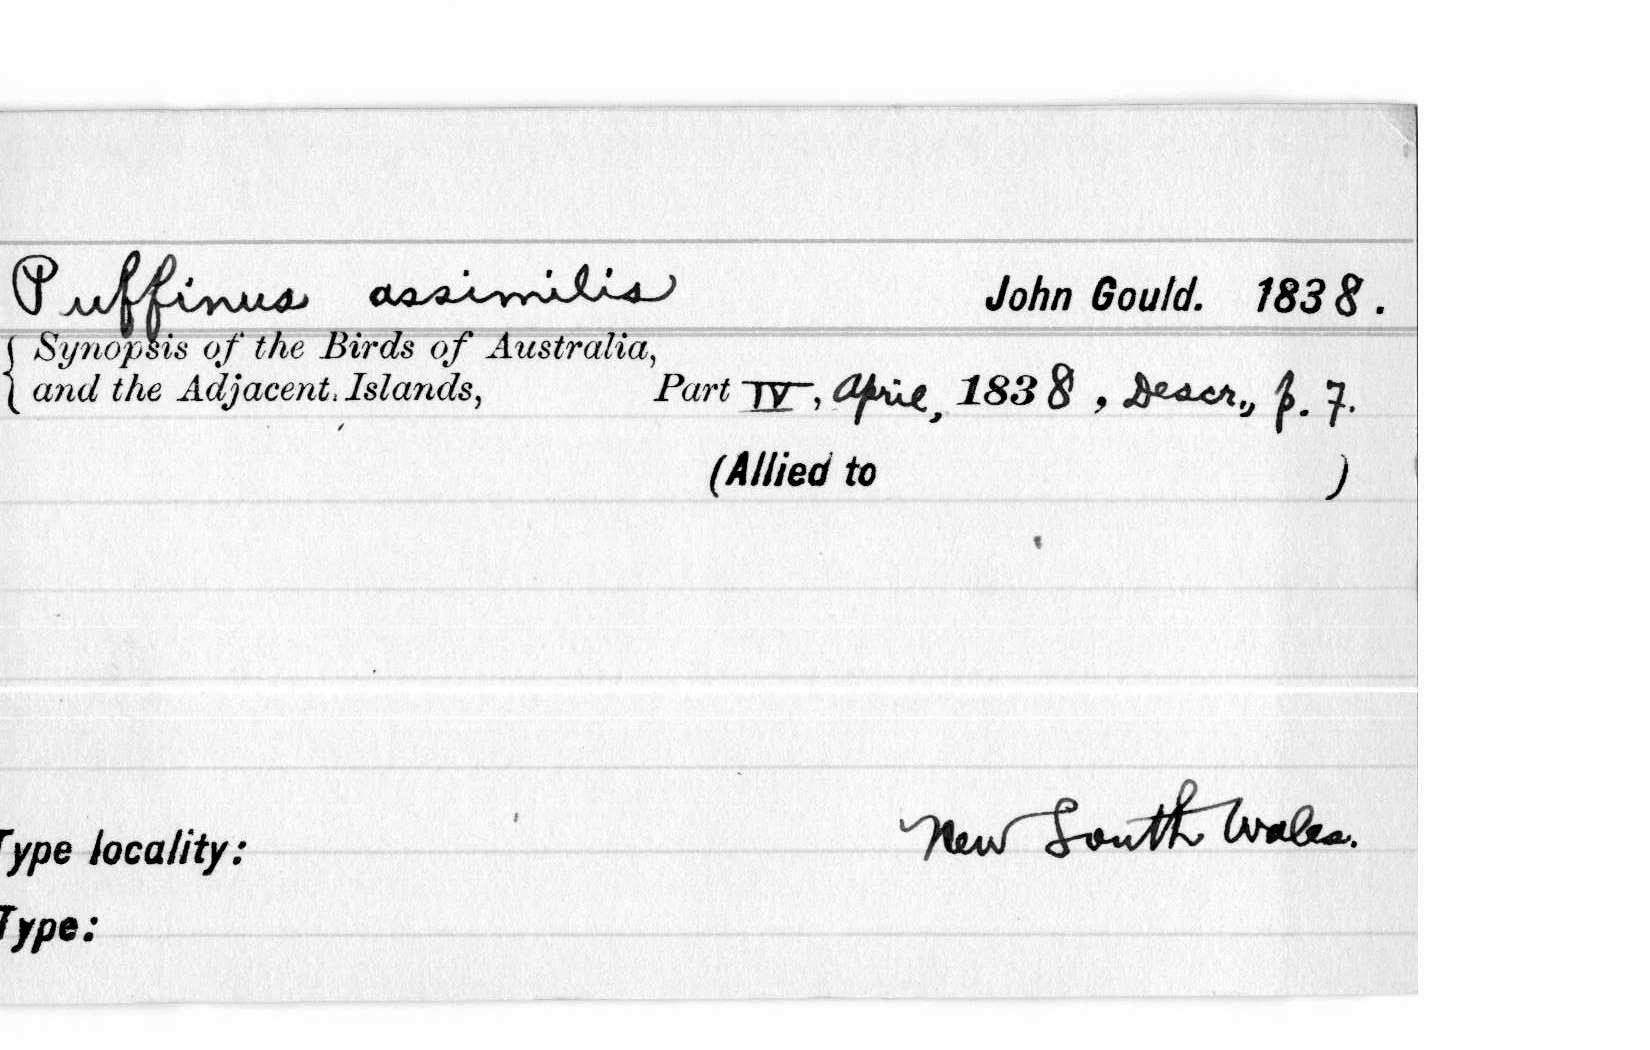 Puffinus assimilis John Gould. 1838.
Synopsis of the Birds of Australia,
and the Adjacent Islands, Part IV, April, 1838, Descr., p. 7.
(Allied to )
Type locality: New South Wales.
Type: